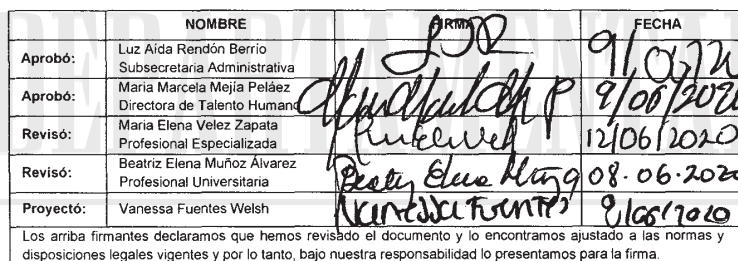 NOMBRE FIRMA FECHA
Aprobó: Luz Aída Rendón Berrío
Subsecretaria Administrativa
Aprobó: Maria Marcela Mejía Peláez 9/06/2020
Directora de Talento Humano
Revisó: Maria Elena Velez Zapata 12/06/2020
Profesional Especializada
Revisó: Beatriz Elena Muñoz Álvarez 08.06.2020
Profesional Universitaria
Proyectó: Vanessa Fuentes Welsh Vanessa Fuentes
Los arriba firmantes declaramos que hemos revisado el documento y lo encontramos ajustado a las normas y
disposiciones legales vigentes y por lo tanto, bajo nuestra responsabilidad lo presentamos para la firma.